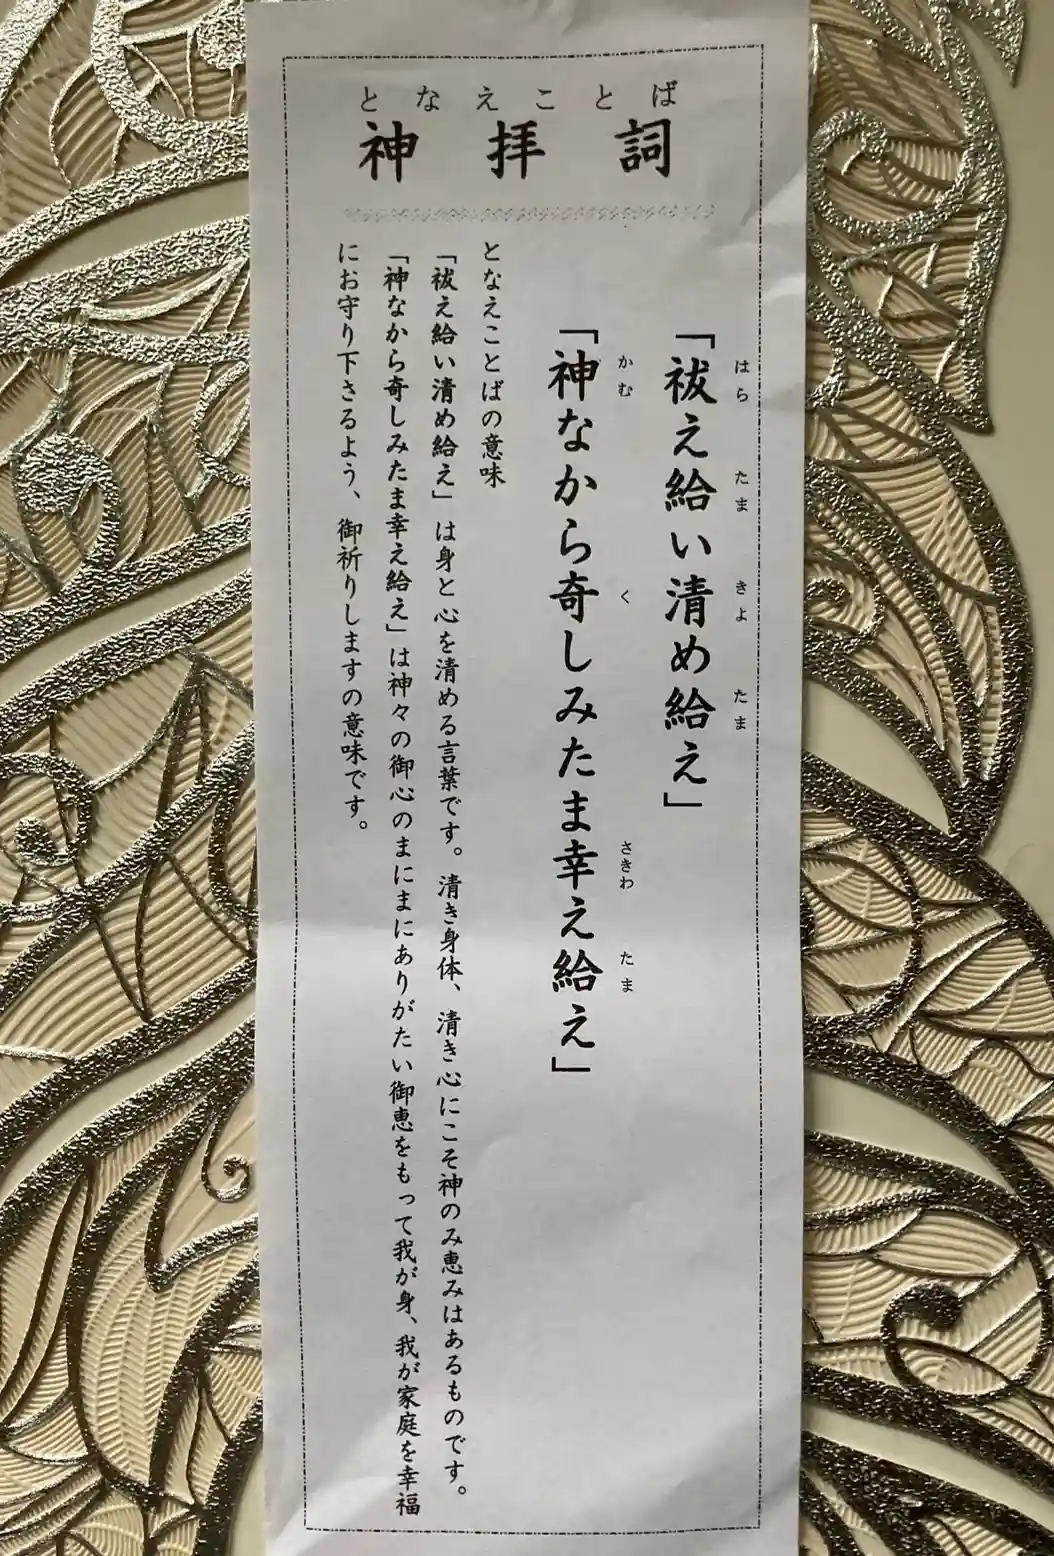 となえことば
神拝詞
「祓え給い清め給え」
はら たま きよ たま
「神なから奇しみたま幸え給え」
かむ く さきわ たま
となえことばの意味
「祓え給い清め給え」は身と心を清める言葉です。清き身体、清き心にこそ神のみ恵みはあるものです。
「神なから奇しみたま幸え給え」は神々の御心のまにまにありがたい御恵をもって我が身、我が家庭を幸福
にお守り下さるよう、御祈りしますの意味です。